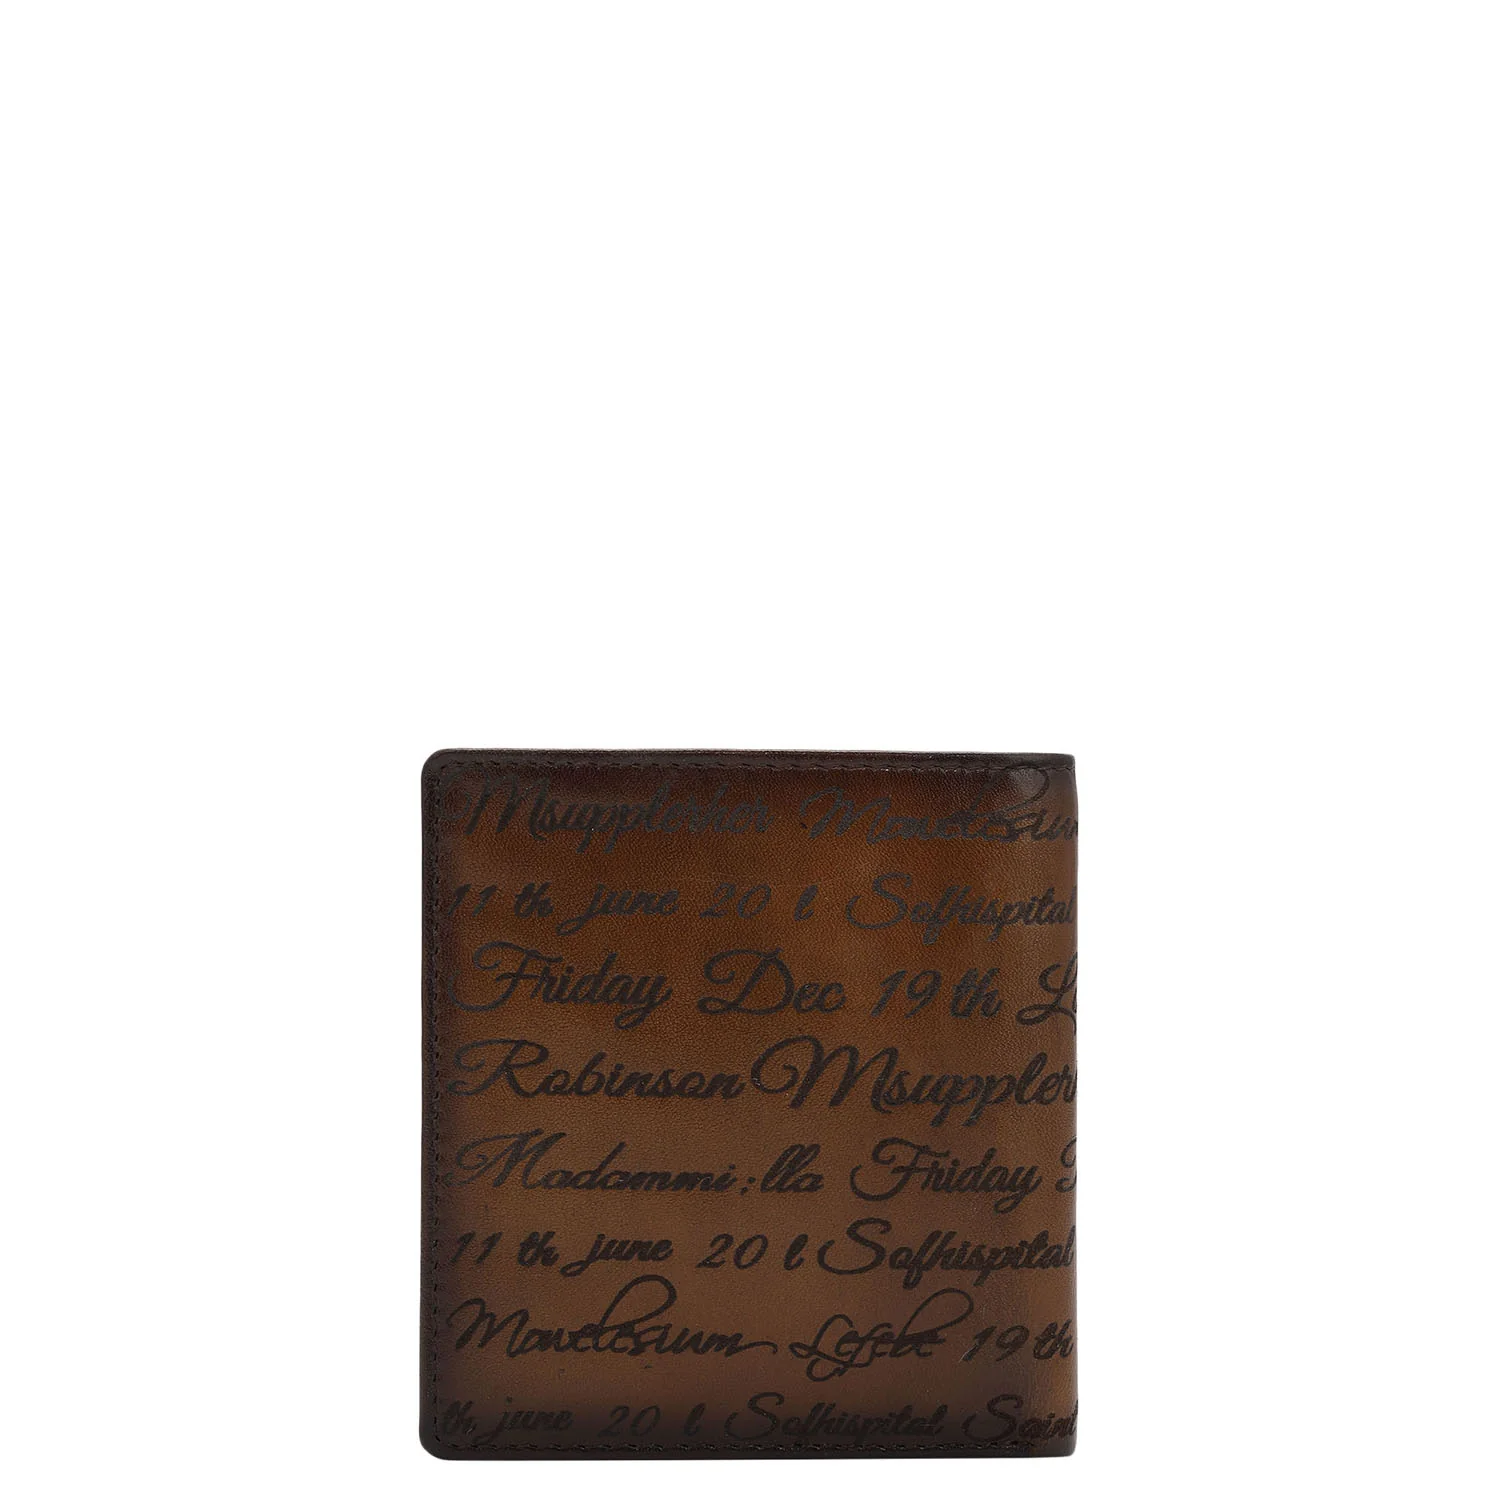 Msupplerher Monelesium
11 th june 20 l Sofhispital
Friday Dec 19 th L
Robinson Msuppler
Madammi:lla Friday
11 th june 20 l Sofhispital
Monelesium Lefebe 19 th
th june 20 l Sofhispital Saint